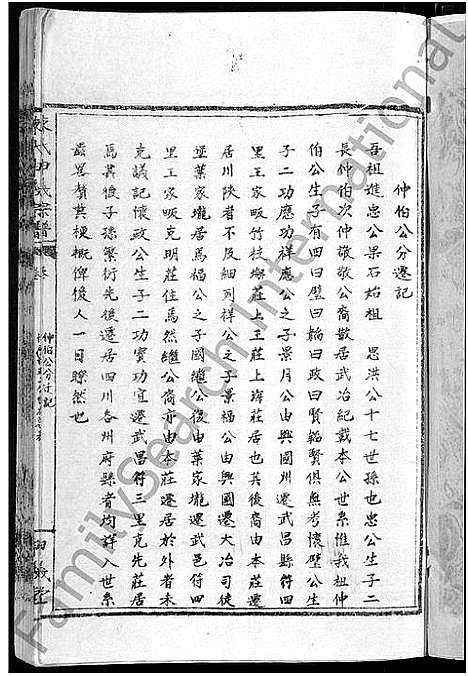 仲伯公分遷記
吾祖進忠公果石始祖　思洪公十七世孫也忠公生子二
長仲伯次仲敬敬公裔散居武冶紀載本公世系惟我祖仲
伯公生子有四曰璧曰韜曰政曰賢韜賢俱無考懷璧公生
子二功應功祥應公之子景月公由興國州遷武昌縣符四
里王家畈竹枝墈莊上王莊上塝莊居也其後裔由本莊遷
居川陝者不及細列祥公之子景福公由興國遷大冶司徒
堡葉家壠居焉福公之子國纘公復由葉家壠遷武邑符四
里王家畈克明莊住焉然纘公裔亦由本莊遷居於外者未
克議記懷政公生子二功寶功宜遷武昌符三里克先莊居
焉其後子孫繁衍先後遷居四川各州府縣者均詳入世系
茲畧贅其梗概俾後人一目瞭然也
陳氏田義宗譜
卷
仲伯公分遷記
田義堂
FamilySearch International